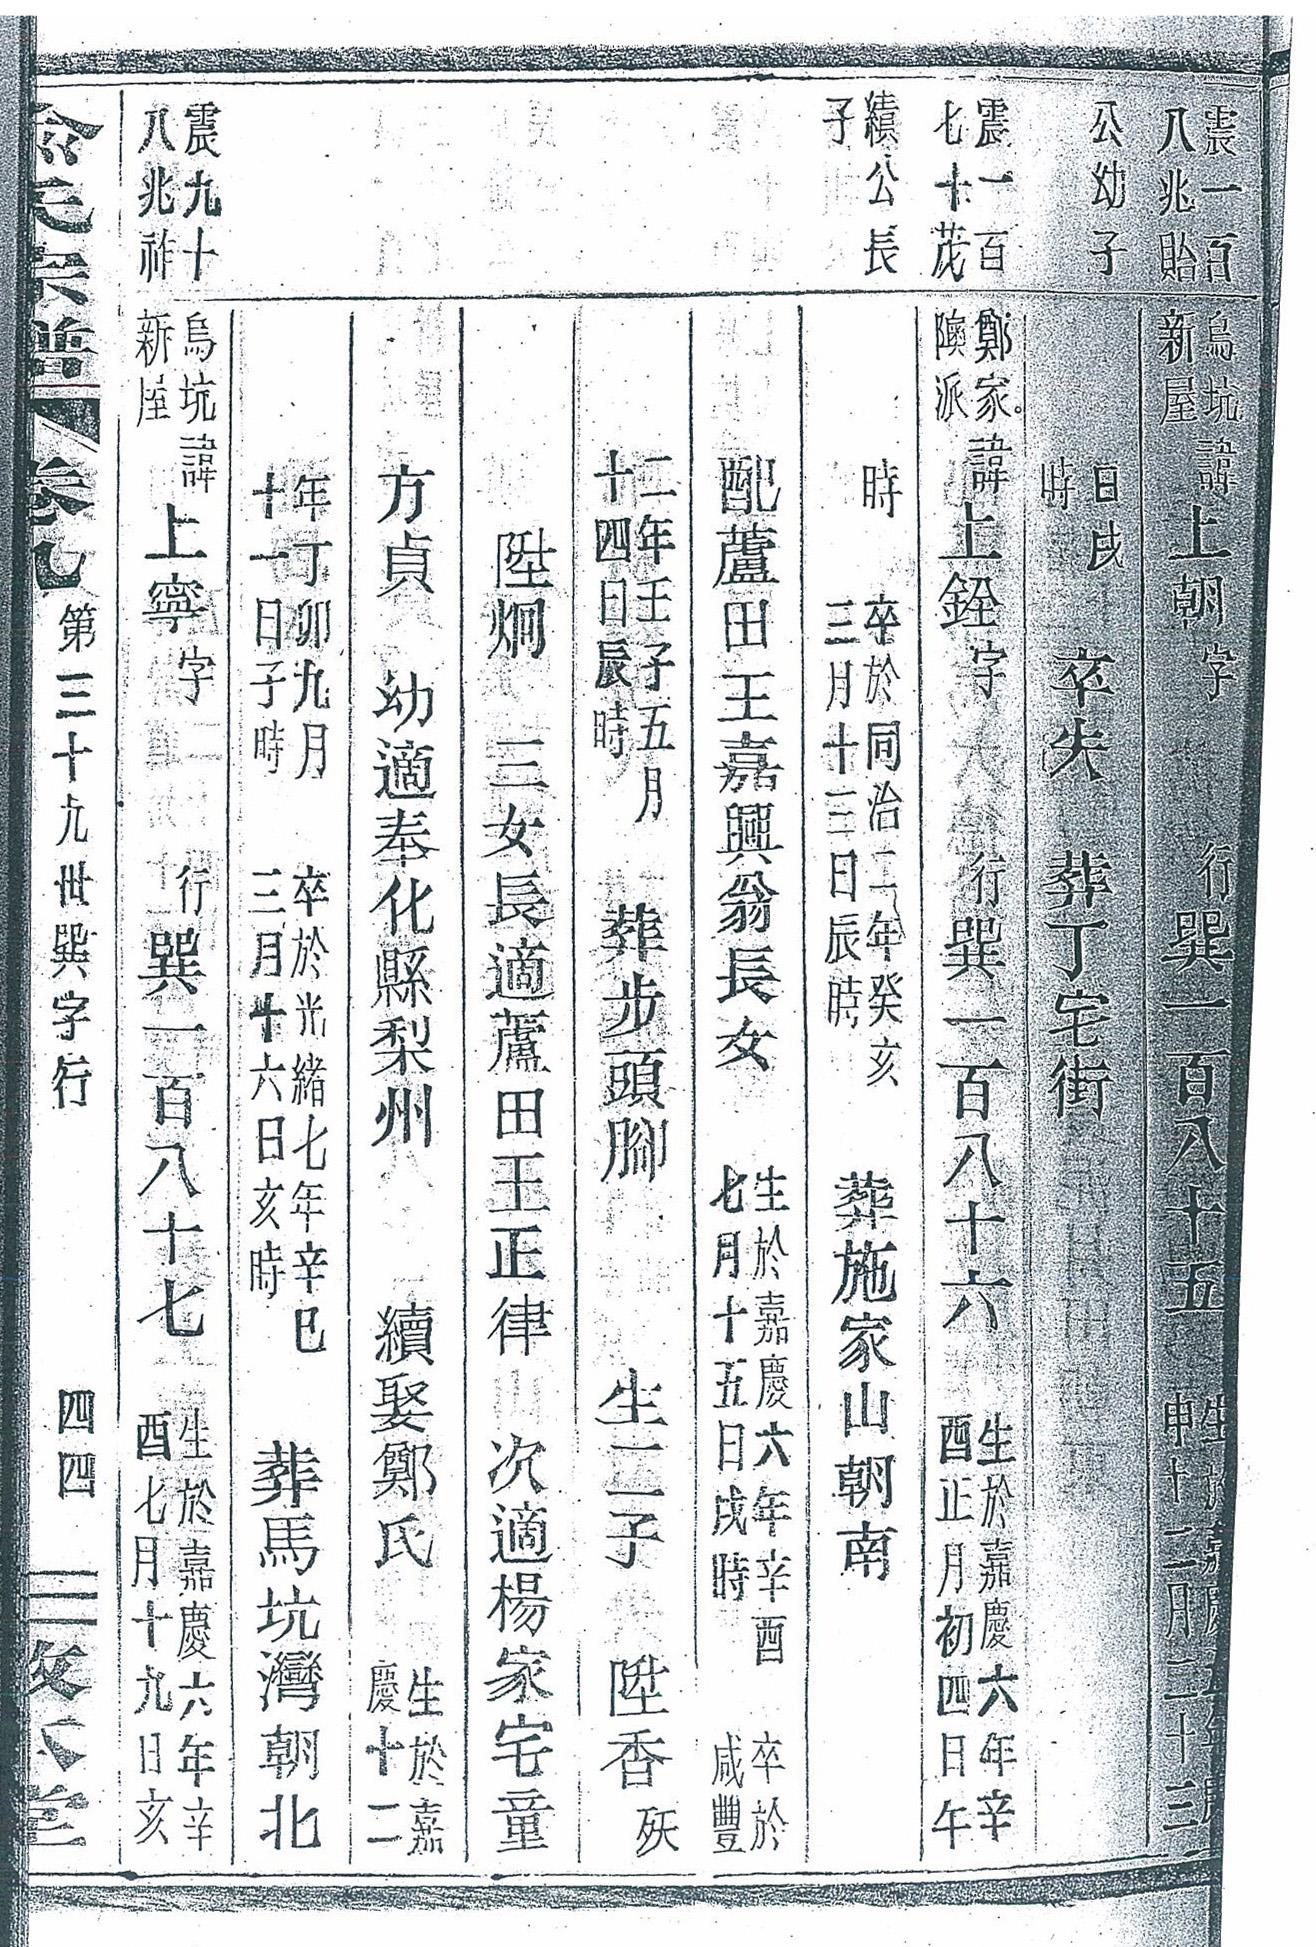 震一百
八兆貽
烏坑
新屋
諱上朝字
行巽一百八十五
生於嘉慶五年庚
申十二月二十三
公幼子
日戌
時
卒失
葬丁宅街
震一百
七十茂
鄭家
隩派
諱上銓字
行巽一百八十六
生於嘉慶六年辛
酉正月初四日午
續公長
子
時
卒於同治二年癸亥
三月十三日辰時
葬施家山朝南
配蘆田王嘉興翁長女
生於嘉慶六年辛酉
七月十五日戌時
卒於
咸豐
二年壬子五月
十四日辰時
葬步頭腳
生二子
陞香
殀
陞炯
三女長適蘆田王正律
次適楊家宅童
方貞
幼適奉化縣梨州
續娶鄭氏
生於嘉
慶十二
年丁卯九月
十一日子時
卒於光緒七年辛巳
三月十六日亥時
葬馬坑灣朝北
震九十
八兆祚
烏坑
新屋
諱上寧字
行巽一百八十七
生於嘉慶六年辛
酉七月十九日亥
俞氏宗譜
卷九
第三十九世巽字行
四四
敦本堂